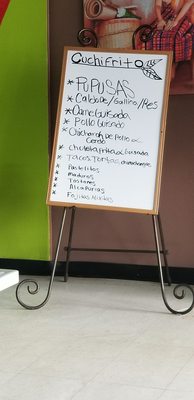 Cuchifrito
* PUPUSAS
* Caldo De/Gallina/Res
* Carne Guisada
* Pollo Guisado
* Chicharron De Pollo o
Cerdo
* Chuleta Frita o Guisada
* Tacos, Tortas,
* Pastelitos
* Maduros
* Tostones
* Alcapurias
* Fajitas Mixtas